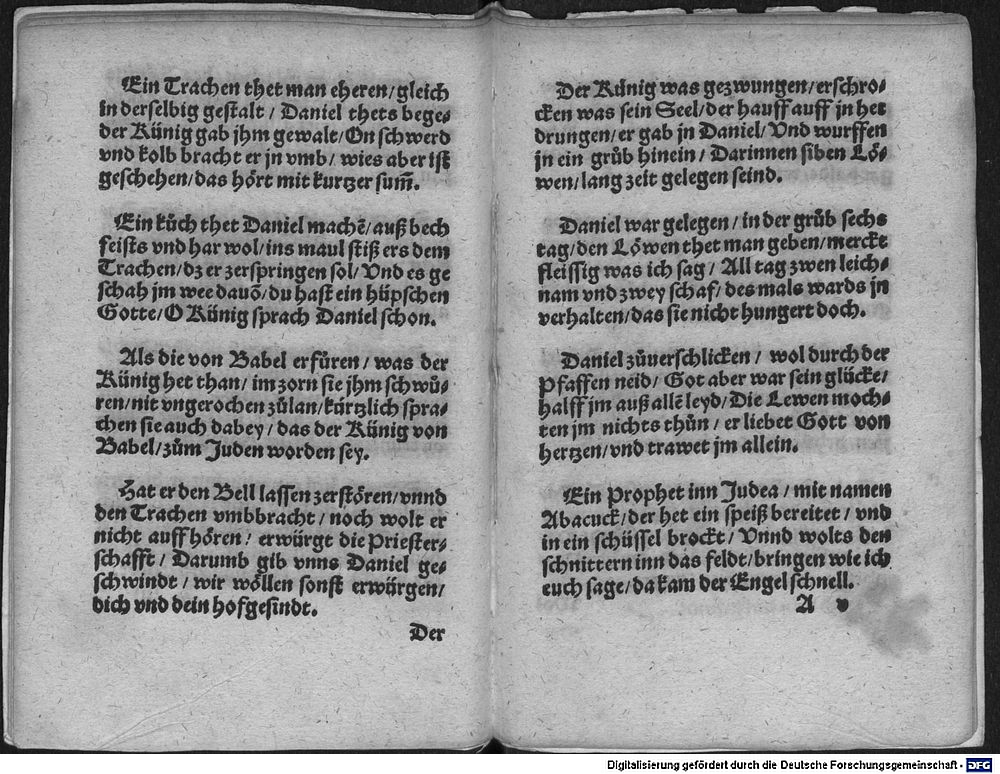 Ein Trachen thet man eheren/gleich
in derselbig gestalt / Daniel thets bege⸗
der Künig gab jhm gewalt/On schwerd
vnd kolb bracht er jn vmb/ wies aber ist
geschehen/das hört mit kurtzer sum̃.
Ein küch thet Daniel machẽ/auß bech
feists vnd har wol/ins maul stiß ers dem
Trachen/dz er zerspringen sol/Vnd es ge
schah jm wee dauõ/du hast ein hüpschen
Gotte/O Künig sprach Daniel schon.
Als die von Babel erfüren / was der
Künig het than/ im zorn sie jhm schwů⸗
ren/nit vngerochen zůlan/kürtzlich spra⸗
chen sie auch dabey / das der Künig von
Babel/zům Juden worden sey.
Hat er den Bell lassen zerstören/vnnd
den Trachen vmbbracht / noch wolt er
nicht auff hören / erwürgt die Priester⸗
schafft / Darumb gib vnns Daniel ge⸗
schwindt / wir wöllen sonst erwürgen/
dich vnd dein hofgesindt.
Der
Der Künig was gezwungen/erschro⸗
cken was sein Seel/der hauff auff jn het
drungen/er gab jn Daniel/Vnd wurffen
jn ein grůb hinein / Darinnen siben Lö⸗
wen/lang zeit gelegen seind.
Daniel war gelegen / in der grůb sechs
tag/den Löwen thet man geben/merckt
fleissig was ich sag / All tag zwen leich⸗
nam vnd zwey schaf/des mals wards jn
verhalten/das sie nicht hungert doch.
Daniel zůuerschlicken / wol durch der
Pfaffen neid/ Got aber war sein glücke/
halff jm auß allẽ leyd/Die Lewen moch⸗
ten jm nichts thůn/ er liebet Gott von
hertzen/vnd trawet jm allein.
Ein Prophet inn Judea / mit namen
Abacuck/der het ein speiß bereitet / vnd
in ein schüssel brockt/ Vnnd wolts den
schnittern inn das feldt/bringen wie ich
euch sage/da kam der Engel schnell.
A
Digitalisierung gefördert durch die Deutsche Forschungsgemeinschaft - DFG